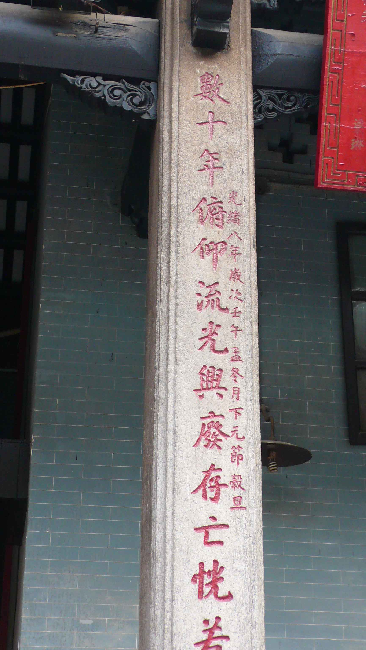 光緒八年歲次壬午孟冬月下元節穀旦
數十年俯仰流光興廢存亡恍若